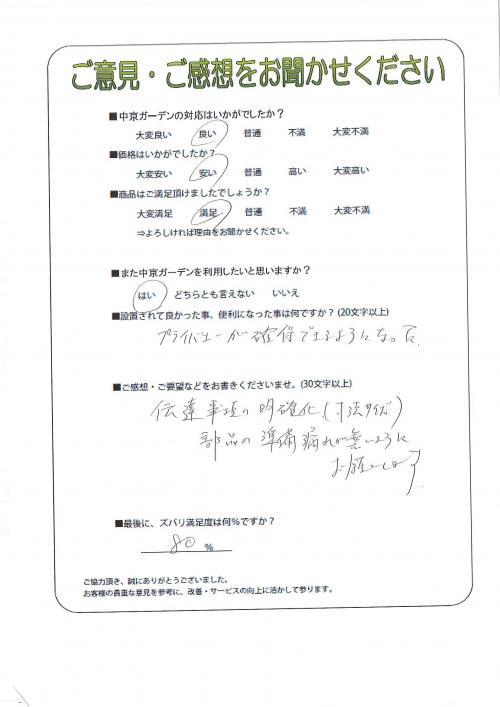 ご意見・ご感想をお聞かせください
■中京ガーデンの対応はいかがでしたか？
大変良い 良い 普通 不満 大変不満
■価格はいかがでしたか？
大変安い 安い 普通 高い 大変高い
■商品はご満足頂けましたでしょうか？
大変満足 満足 普通 不満 大変不満
⇒よろしければ理由をお聞かせください。
■また中京ガーデンを利用したいと思いますか？
はい どちらとも言えない いいえ
■設置されて良かった事、便利になった事は何ですか？(20文字以上)
プライバシーが確保できるようになった。
■ご感想・ご要望などをお書きくださいませ。(30文字以上)
伝達事項の明確化（寸法サイズ）
部品の準備漏れが無いように
お願いします。
■最後に、ズバリ満足度は何％ですか？
80 ％
ご協力頂き、誠にありがとうございました。
お客様の貴重な意見を参考に、改善・サービスの向上に活かして参ります。